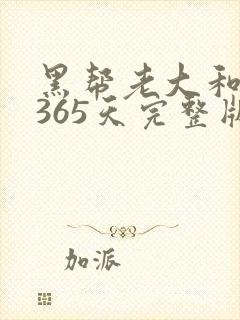 黑帮老大和
365天完整版
加派